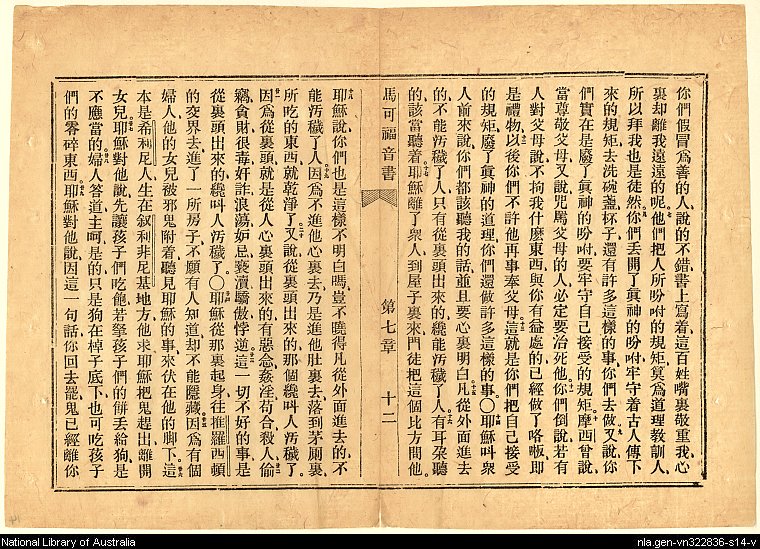 你們假冒爲善的人說的不錯書上寫着這百姓嘴裏敬重我心
裏却離我遠遠的呢他們把人所吩咐的規矩莫爲道理教訓人
所以拜我也是徒然你們丟開了眞神的吩咐牢守着古人傳下
來的規矩去洗碗盞杯子還有許多這樣的事你們去做又說你
們實在是廢了眞神的吩咐要牢守自己接受的規矩摩西曾說
當尊敬父母又說咒罵父母的人必定要治死他你們倒說若有
人對父母說不拘我什麼東西與你有益處的已經做了咯嘣即
是禮物以後你們不許他再事奉父母這就是你們把自己接受
的規矩廢了眞神的道理你們還做許多這樣的事〇耶穌叫衆
人前來說你們都該聽我的話並且要心裏明白凡從外面進去
的不能汚穢了人只有從裏頭出來的纔能汚穢了人有耳朶聽
的該當聽着耶穌離了衆人到屋子裏來門徒把這個比方問他
馬可福音書 第七章 十二
耶穌說你們也是這樣不明白嗎豈不曉得凡從外面進去的不
能汚穢了人因爲不進他心裏去乃是進他肚裏去落到茅厠裏
所吃的東西就乾淨了又說從裏頭出來的那個纔叫人汚穢了
因爲從裏頭就是從人心裏頭出來的有惡念姦淫苟合殺人偷
竊貪財很毒奸詐浪蕩妬忌褻瀆驕傲悖逆這一切不好的事是
從裏頭出來的纔叫人汚穢了〇耶穌從那裏起身往推羅西頓
的交界去進了一所房子不願有人知道却不能隱藏因爲有個
婦人他的女兒被邪鬼附着聽見耶穌的事來伏在他的脚下這
本是希利尼人生在叙利非尼基地方他求耶穌把鬼趕出離開
女兒耶穌對他說先讓孩子們吃飽若拏孩子們的餠丢給狗是
不應當的婦人答道主呵是的只是狗在棹子底下也可吃孩子
們的零碎東西耶穌對他說因這一句話你回去罷鬼已經離你
National Library of Australia
nla.gen-vn322836-s14-v